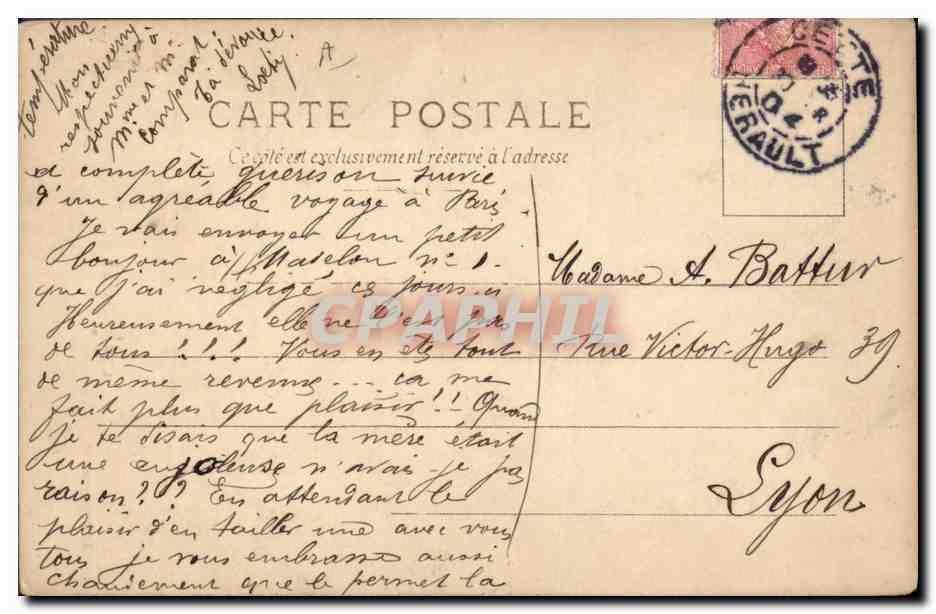 CARTE POSTALE
Ce côté est exclusivement réservé à l'adresse
CETTE
HERAULT
04
et complète guérison suivie
d'un agréable voyage à Paris.
Je vais envoyer un petit
bonjour à Madelon n° 1.
que j'ai négligé ces jours-ci
Heureusement elle ne l'est pas
de tous!!!! Vous en êtes tout
de même revenus... ça me
fait plus que plaisir!! Quand
je te disais que la mère était
une enjoleuse n'avais-je pas
raison?? En attendant le
plaisir d'en tailler une avec vous
tous je vous embrasse aussi
chaudement que le permet la
température
Mon
respectueux
souvenir à
Mme et M.
Comparat
Ta dévouée
Madame A. Battur
Rue Victor-Hugo 39
Lyon
CPAPHIL